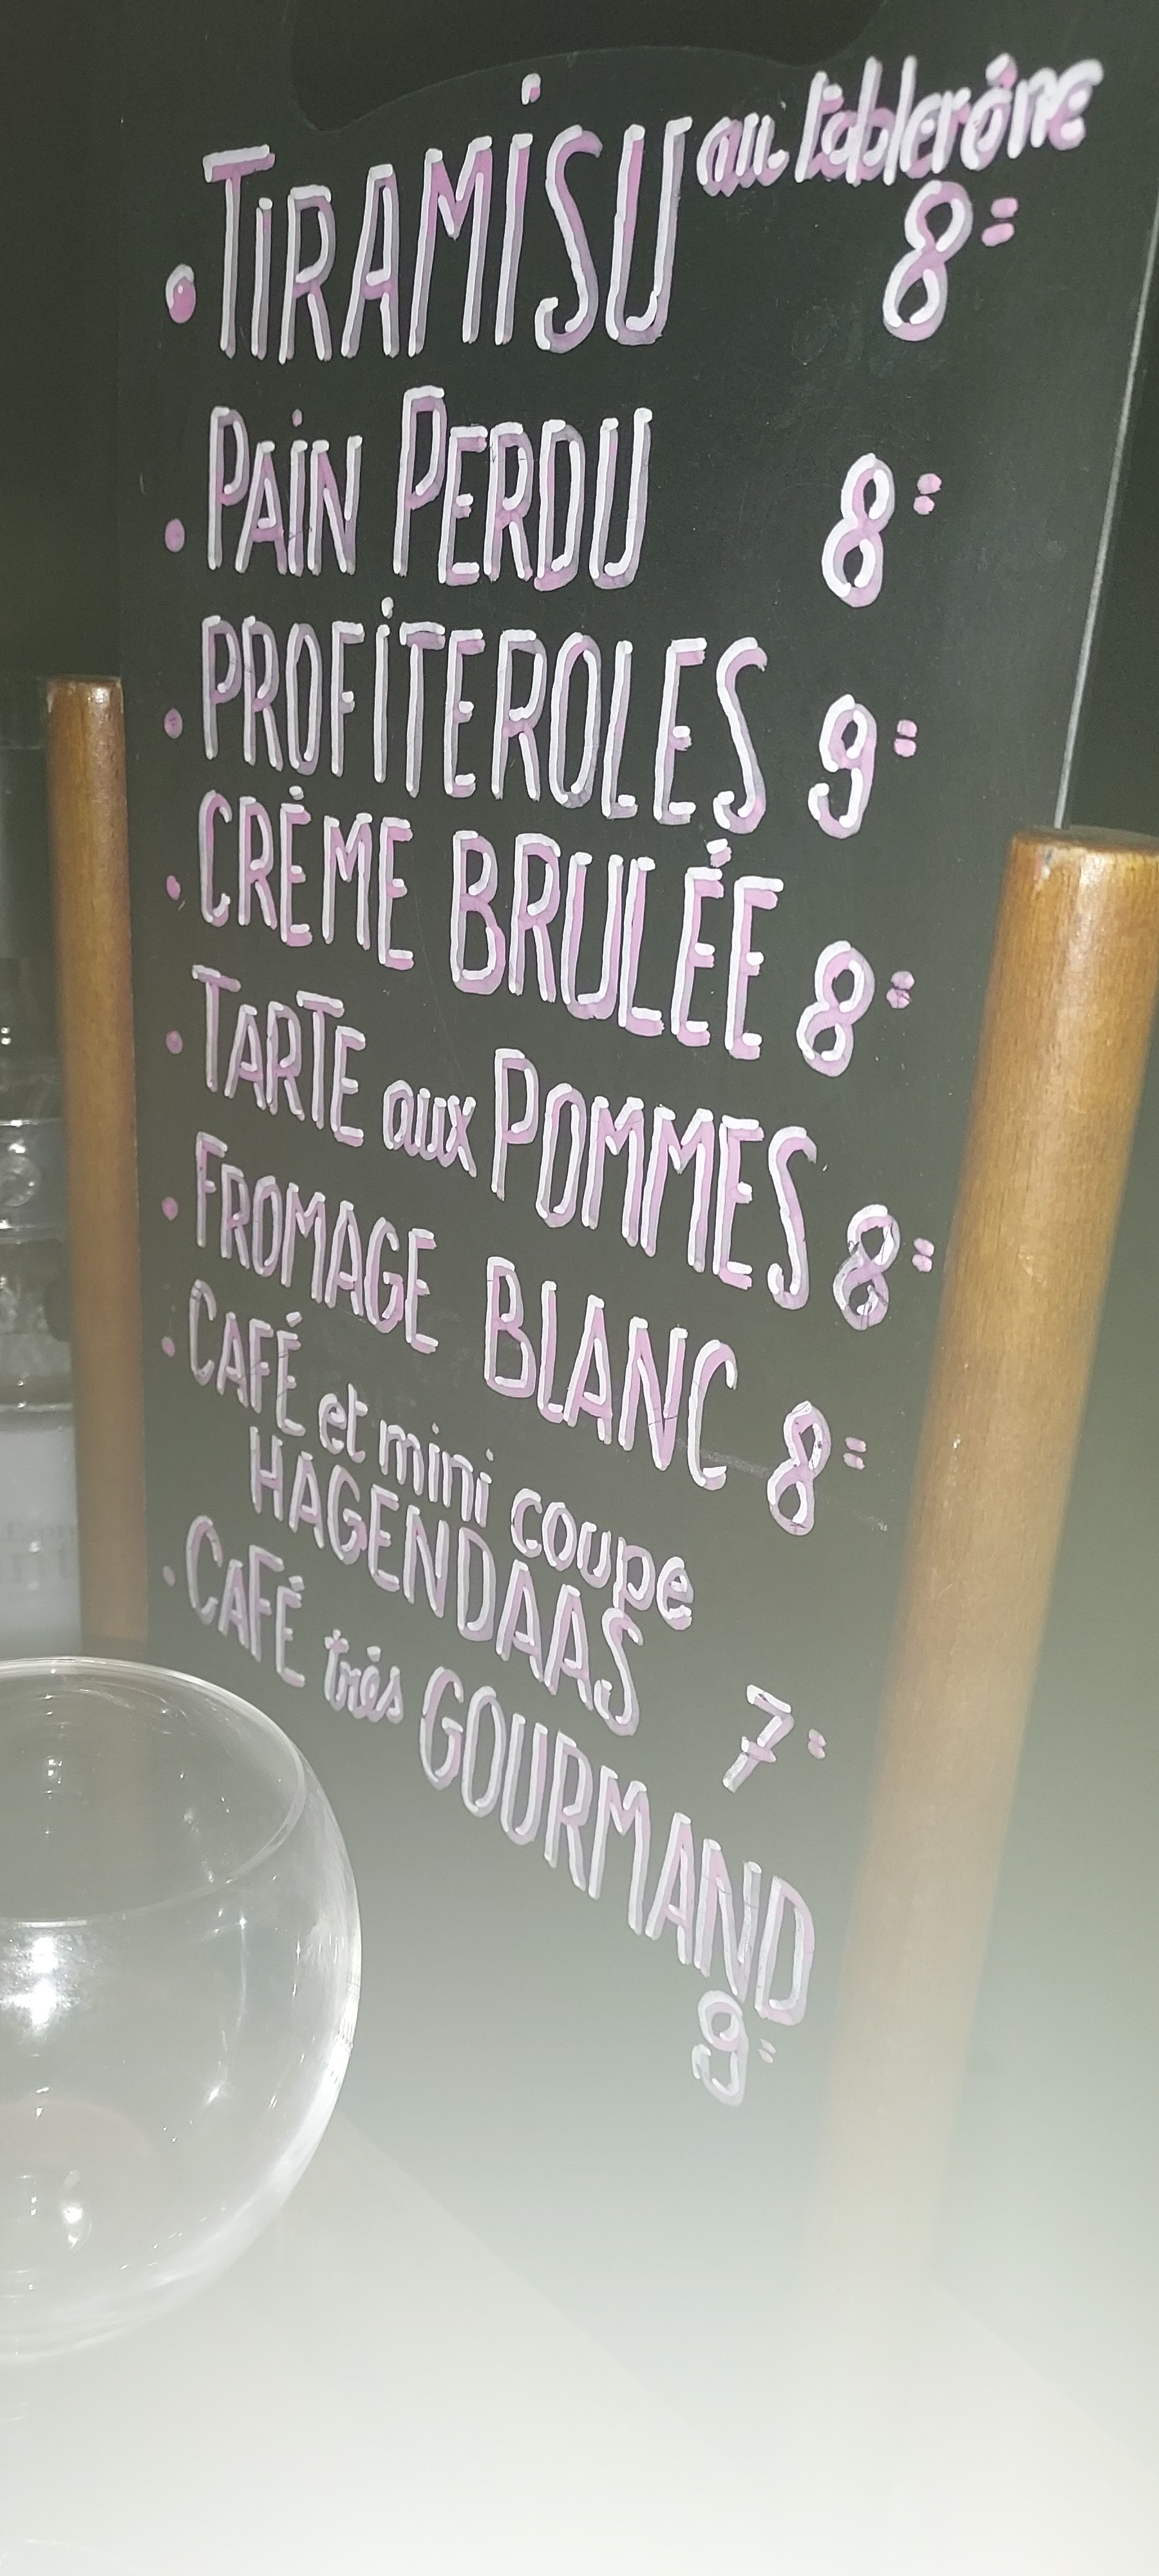 • TiRAMiSU au toblerône
8=
• PAiN PERDU 8=
• PROFiTEROLES 9=
• CRÈME BRULÉE 8=
• TARTE aux POMMES 8=
• FROMAGE BLANC 8=
• CAFÉ et mini coupe
HAGENDAAS 7=
• CAFÉ très GOURMAND
9=